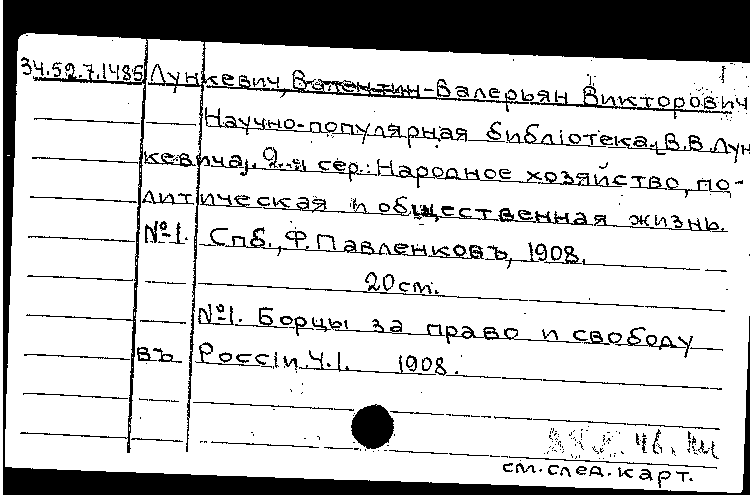 34.59.7.1485 Лункевич, Валентин-Валерьян Викторович
Научно-популярная библіотека [В.В. Лун
кевича]. 2-я сер.: Народное хозяйство, по-
литическая и общественная жизнь.
№1. Спб., Ф. Павленковъ, 1908.
20 см.
№1. Борцы за право и свободу
въ Россіи. Ч.I. 1908.
46.
см. след. карт.